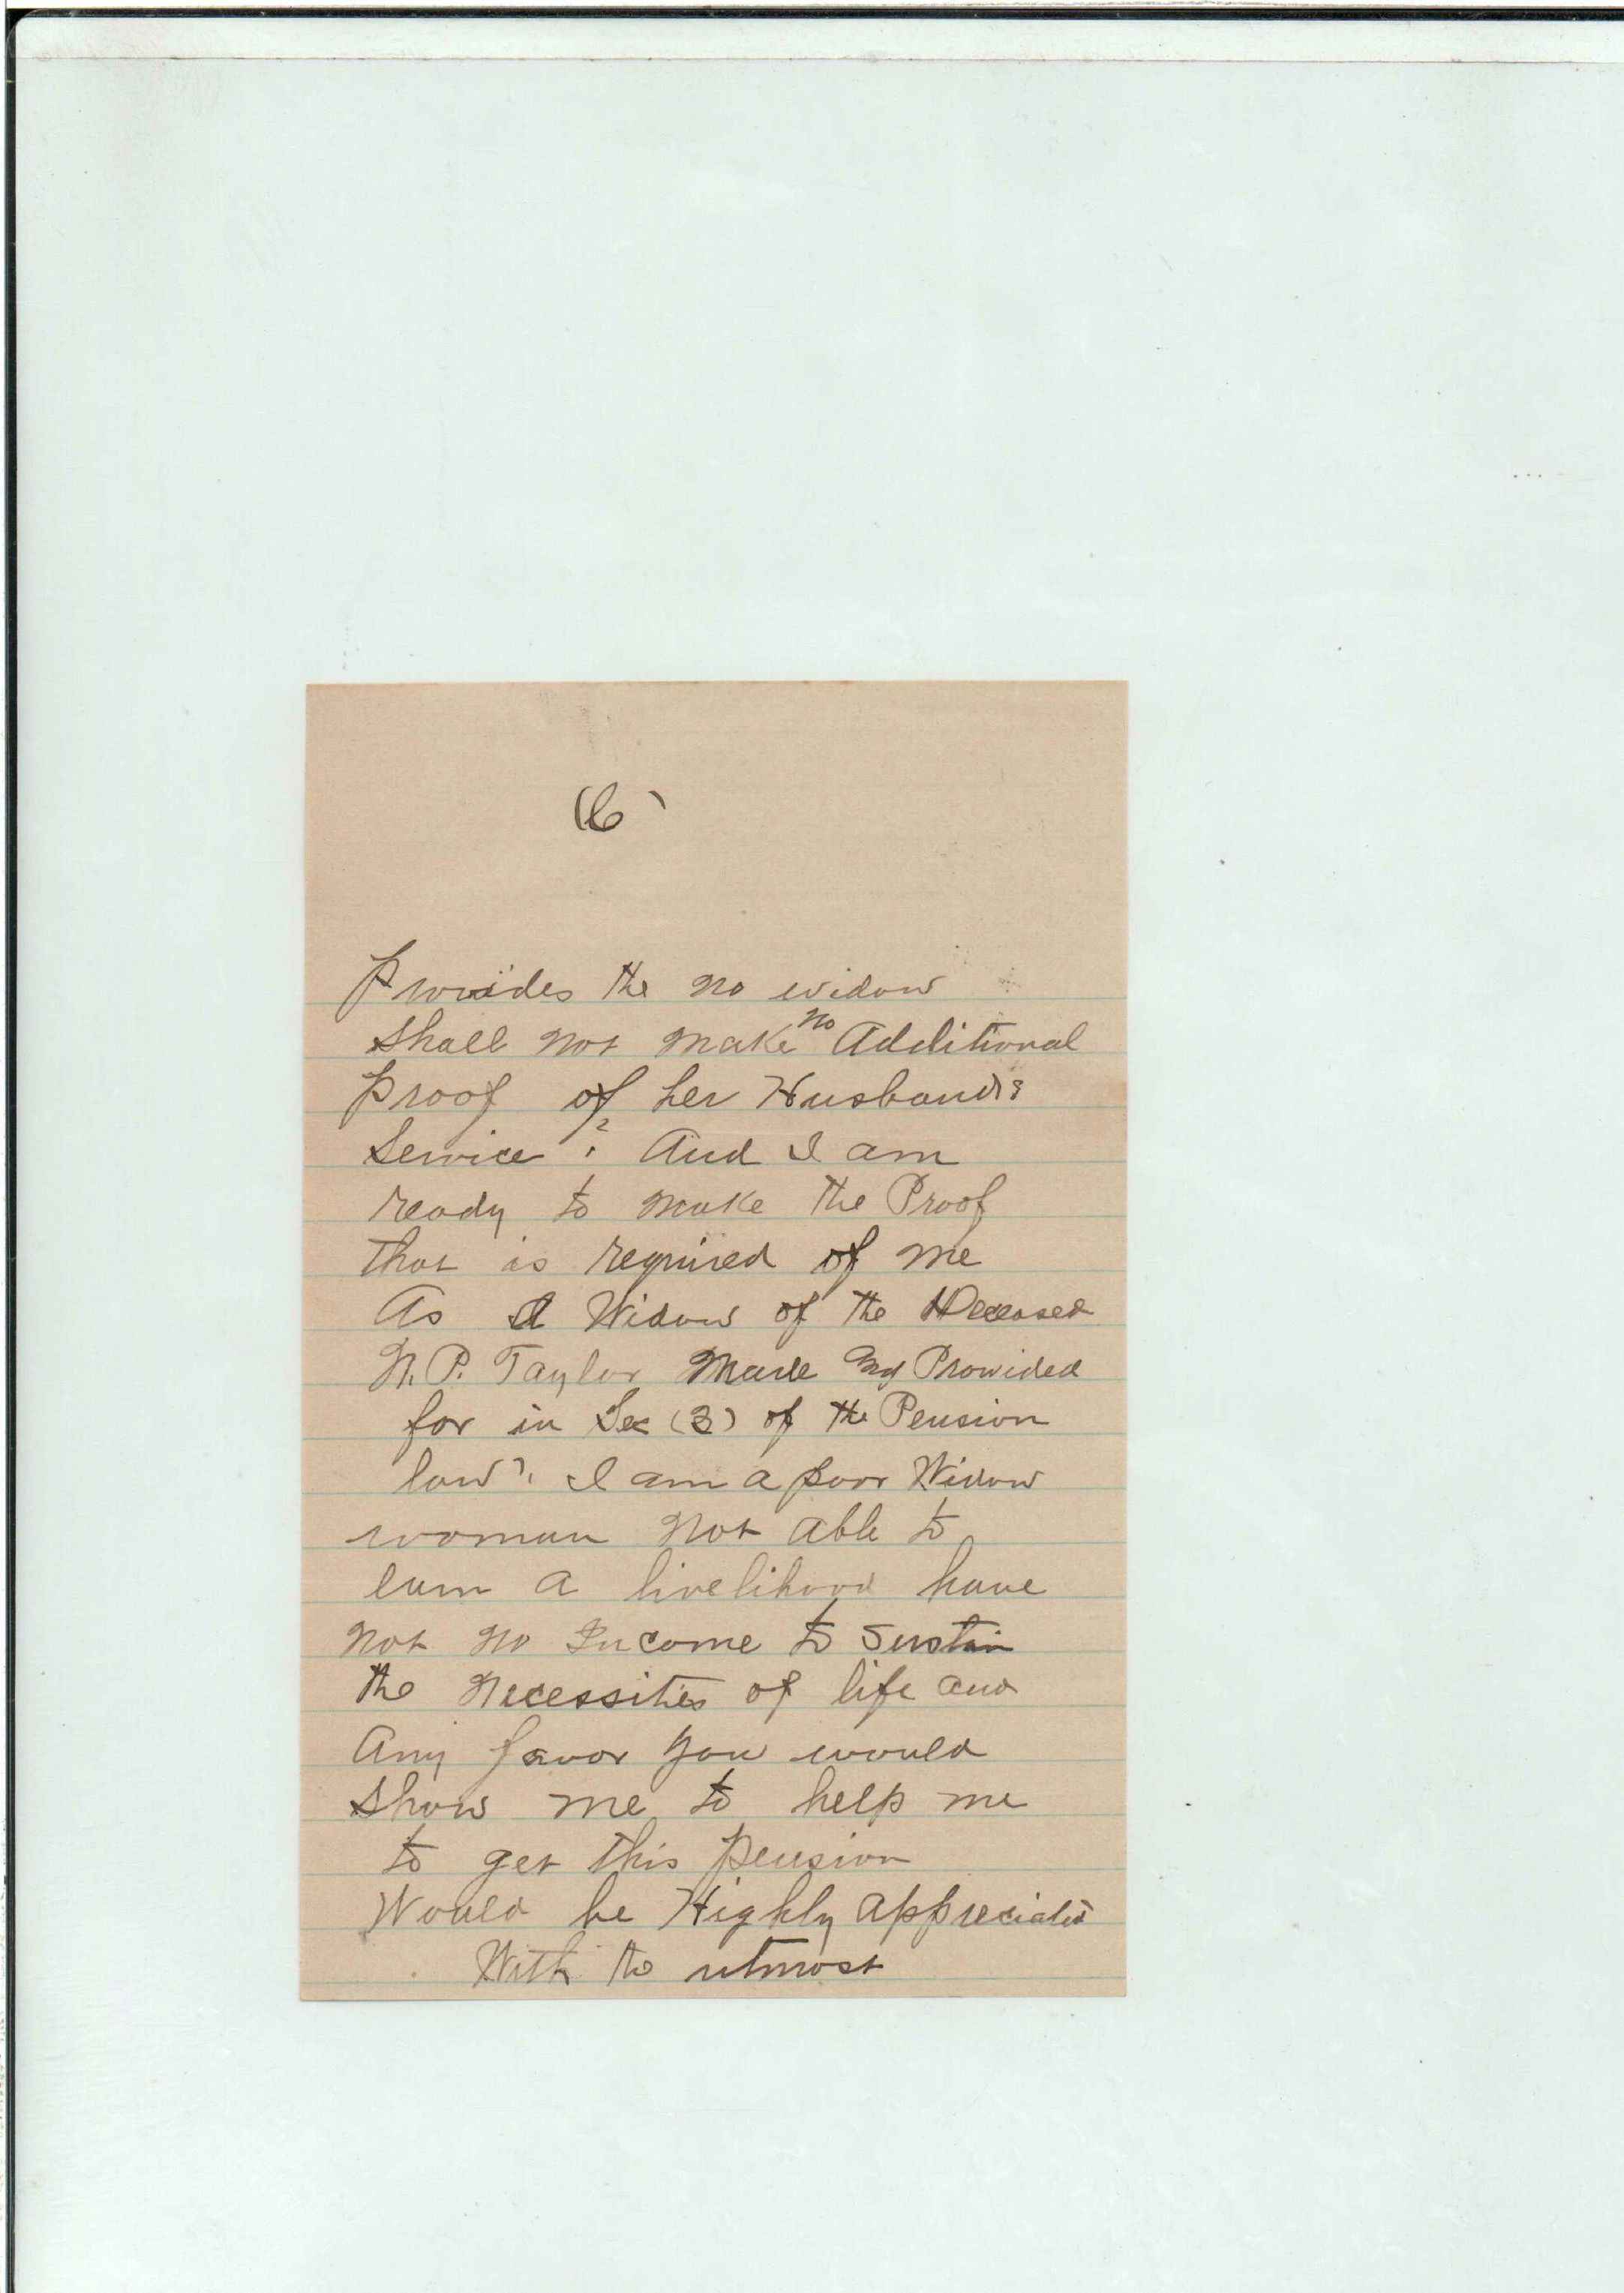 (6)
Provides the no widow
shall not make no Additional
Proof of her Husbands
Service. And I am
ready to make the Proof
that is required of me
As A Widow of the Deceased
N. P. Taylor made Provided
for in Sec (3) of the Pension
law. I am a poor Widow
woman not able to
earn a livelihood have
not no Income to sustain
the Necessities of life and
Any favor you would
show me to help me
to get this pension
Would be Highly appreciated
With the utmost